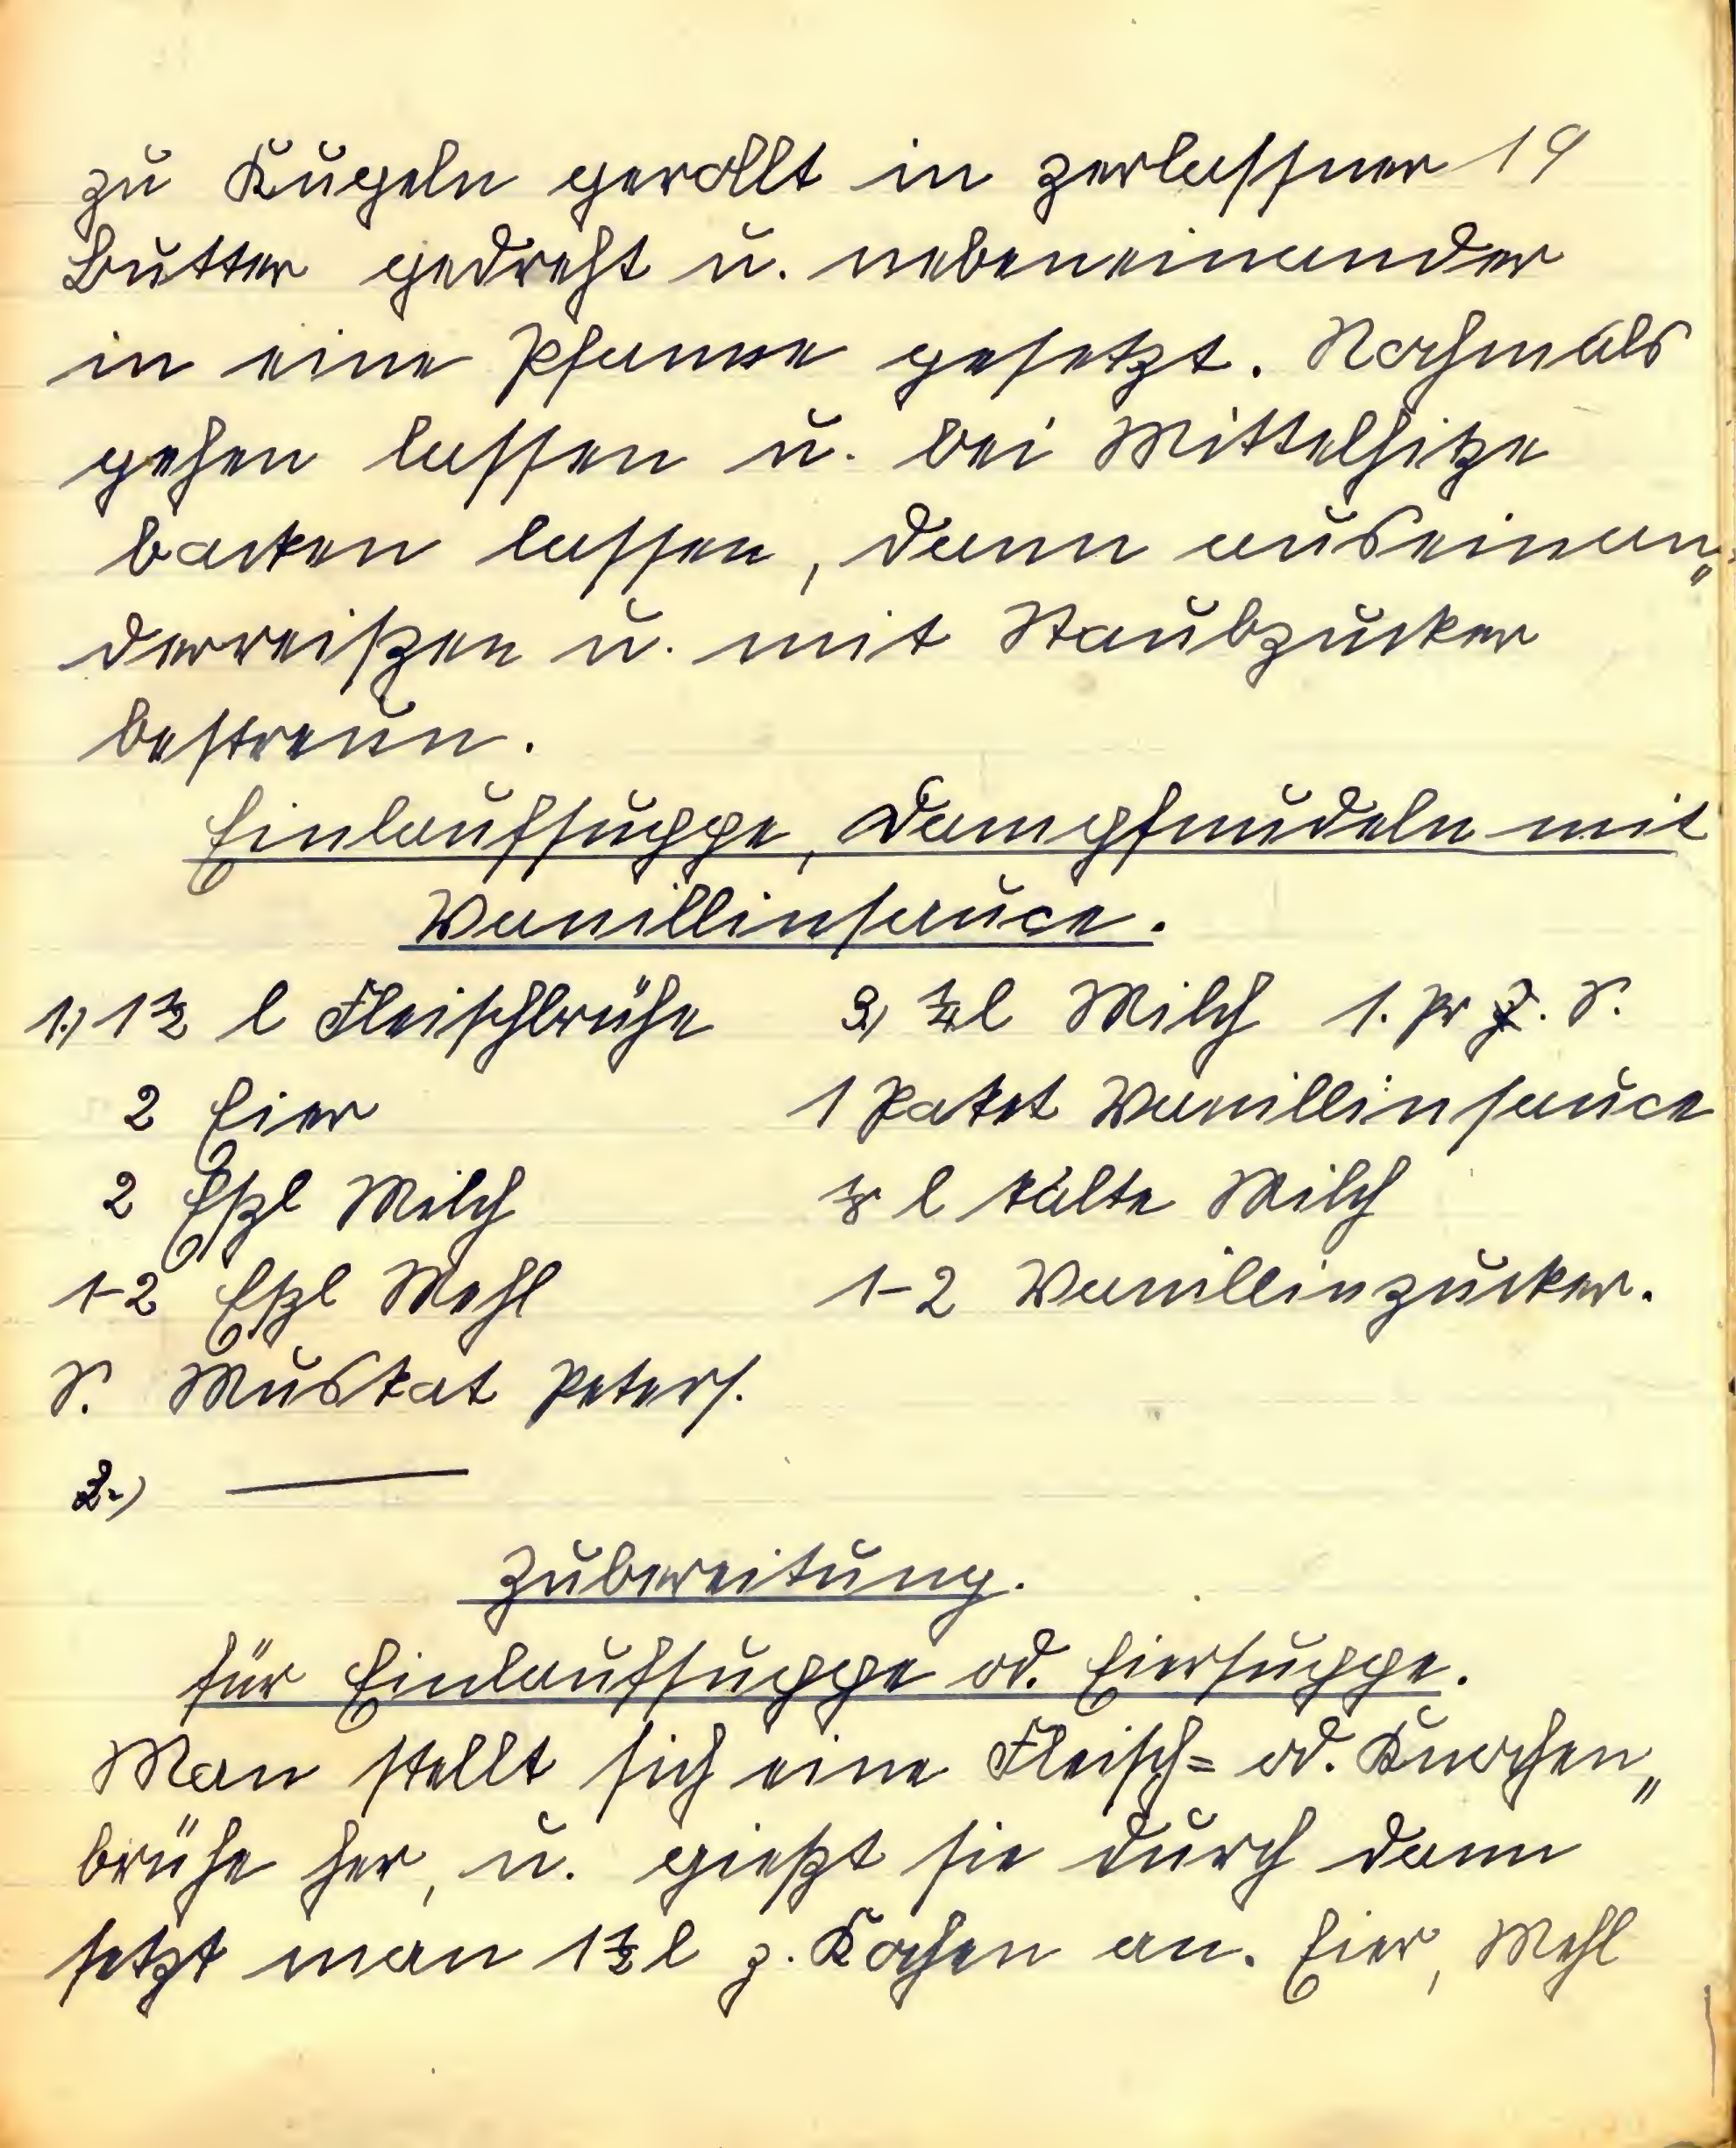 zu Kugeln gerollt in zerlassner 19
Butter gedreht u. nebeneinander
in eine Pfanne gesetzt. Nochmals
gehen lassen u. bei Mittelhitze
backen lassen, dann auseinan„
derreißen u. mit Staubzucker
bestreun.
Einlaufsuppe, Dampfnudeln mit
Vanillinsauce.
1.) 1½ l Fleischbrühe
2 Eier
2 Eßl Milch
1-2 Eßl Mehl
S. Muskat Peters.
2.) —
3.) ¼ l Milch 1. Pr S.
1 Paket Vanillinsauce
⅛ l kalte Milch
1-2 Vanillinzucker.
Zubereitung.
für Einlaufsuppe od. Eiersuppe.
Man stellt sich eine Fleisch= od. Knochen„
brühe her, u. gießt sie durch dann
setzt man 1½ l z. Kochen an. Eier, Mehl